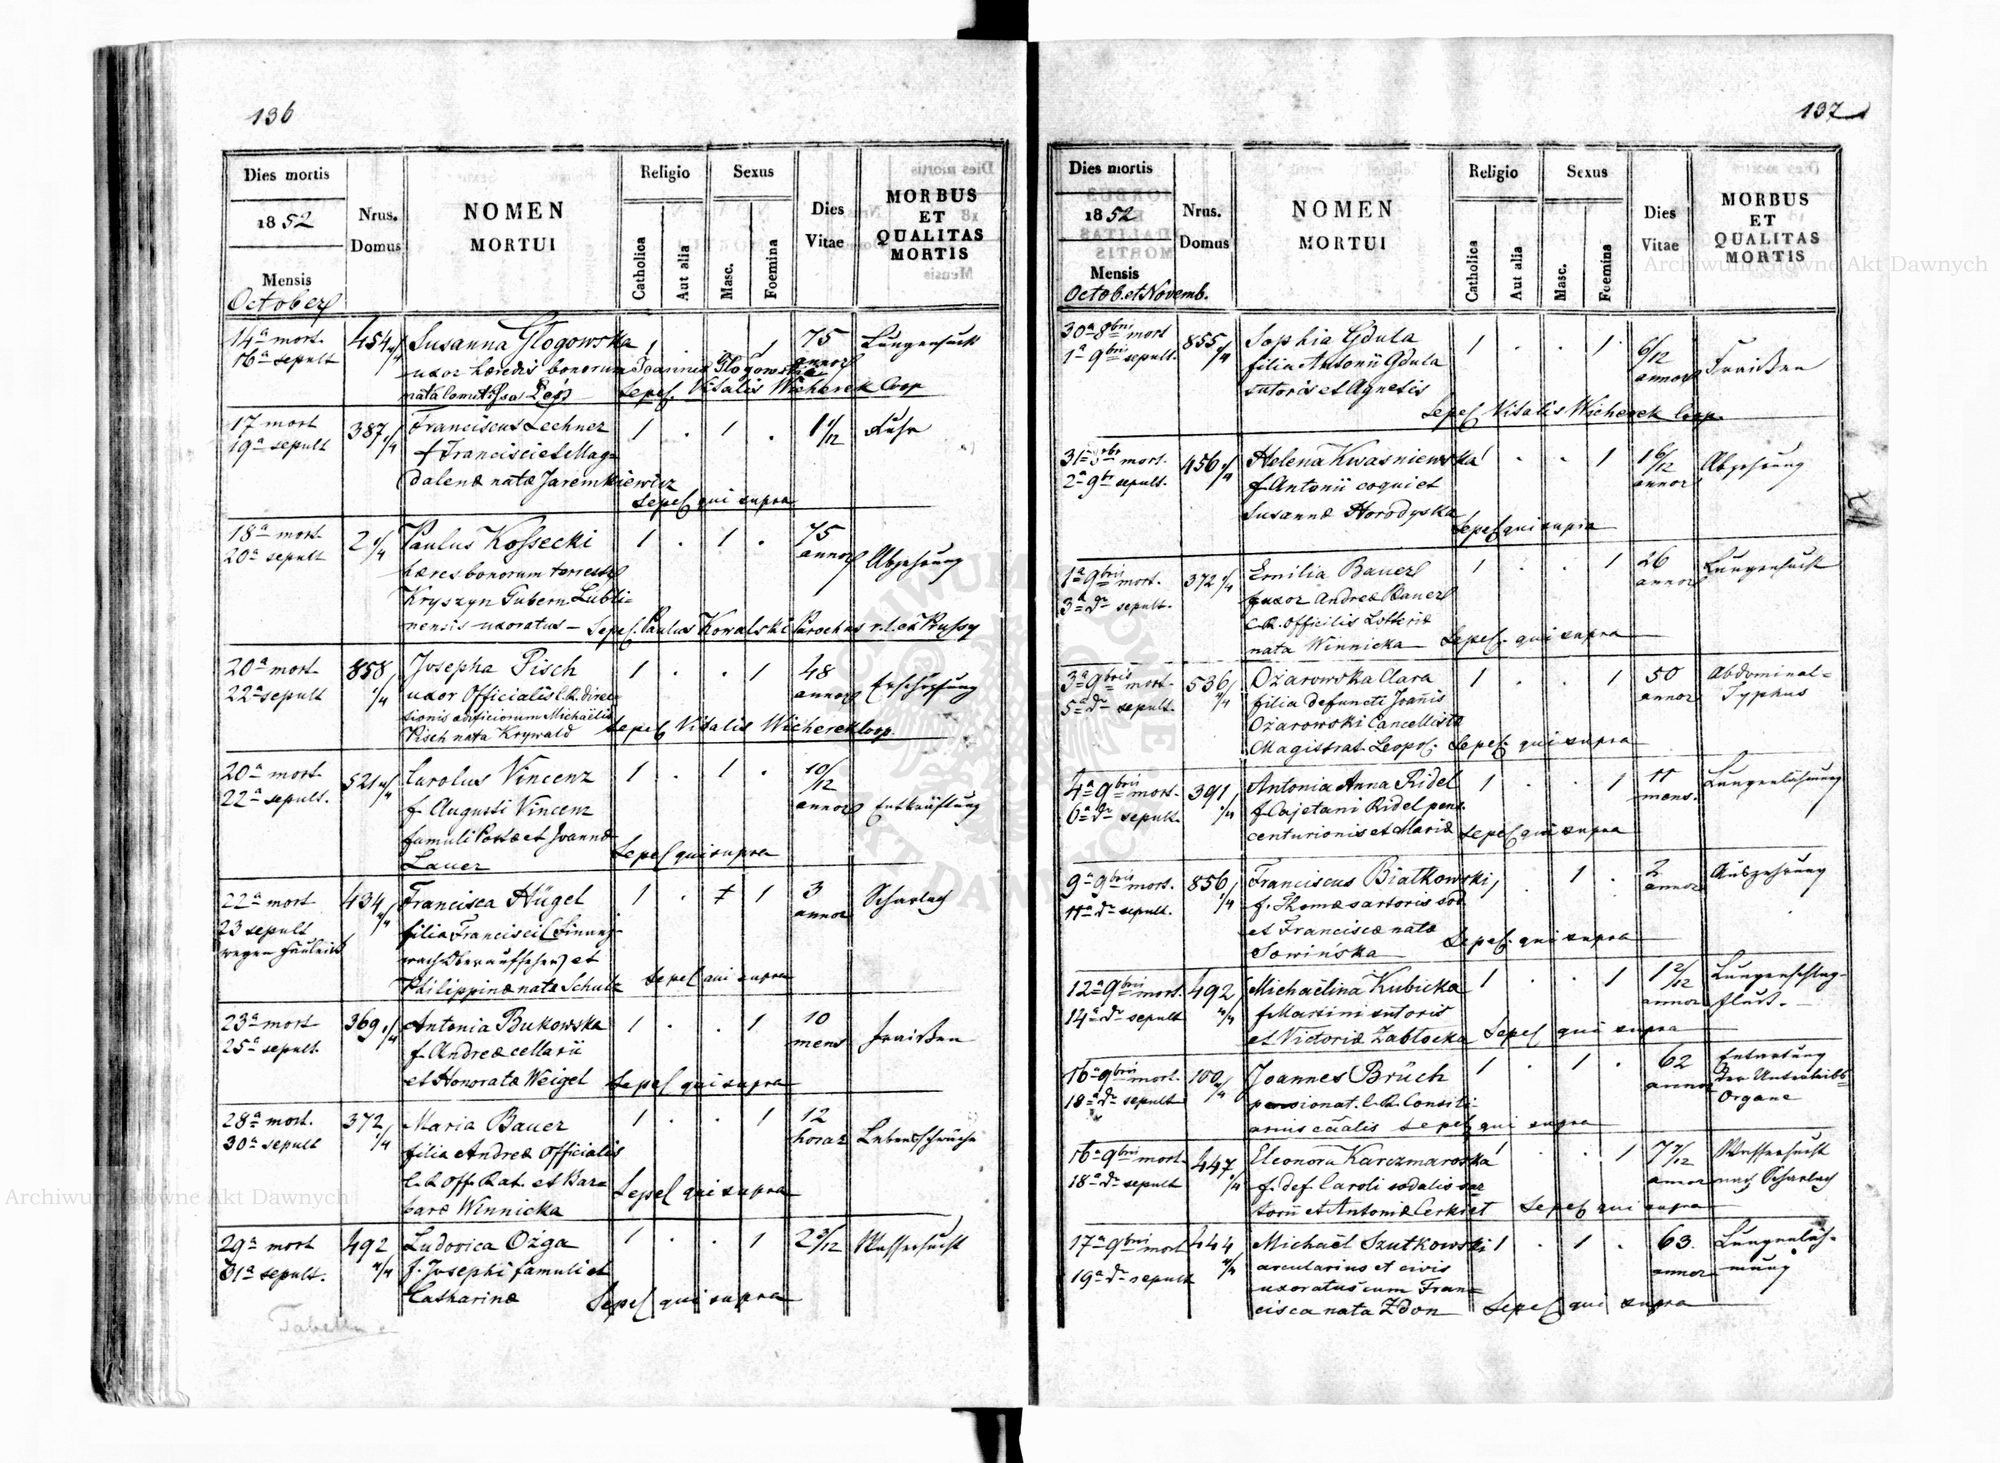 136
Dies mortis
1852
Mensis
October
Nrus. Domus
NOMEN MORTUI
Religio
Catholica
Aut alia
Sexus
Masc.
Foemina
Dies Vitae
MORBUS ET QUALITAS MORTIS
14a mort. 454 4/4 Susanna Głogowska 1 . . 1 75 Lungensucht
16a sepult uxor hæredis bonorum Joannis Głogowski annor
nata Comitissa Łoś Sepel. Vitalis Wicherek Coop
17 mort 387 1/4 Franciscus Lechner 1 . 1 . 1 1/12 Ruhr
19a sepult f Francisci et Mag=
dalenæ natæ Jaremkiewicz
Sepel qui supra
18a mort 2 1/4 Paulus Kossecki 1 . 1 . 75 Abzehrung
20a sepult hæres bonorum terrest annor
Kryszyn Gubern Lubli=
nensis uxoratus – Sepel. Paulus Kowalski Parochus
20a mort 858 1/4 Josepha Pisch 1 . . 1 48 Erschöpfung
22a sepult uxor Officialis C.R. direc annor
tionis ædificiorum Michaëlis
Pisch nata Krywald Sepel Vitalis Wicherek Coop.
20a mort 521 4/4 Carolus Vincenz 1 . 1 . 10/12 Entkräftung
22a sepult. f. Augusti Vincenz annor
famuli Postæ et Joannæ
Lauer Sepel qui supra
22a mort 434 4/4 Francisca Hügel 1 . 1 3 Scharlach
23 sepult filia Francisci (Finanz= annor
wegen Fäulniß wach Oberaufseher) et
Philippinæ nata Schulz Sepel qui supra
23a mort 369 1/4 Antonia Bukowska 1 . . 1 10 Fraißen
25a sepult. f Andreæ cellarii mens
et Honoratæ Weigel Sepel qui supra
28a mort. 372 1/4 Maria Bauer 1 . . 1 12 Lebensschwäche
30a sepult filia Andreæ Officialis horar
C.R. Off. Rat. et Bar=
baræ Winnicka Sepel qui supra
29a mort 492 4/4 Ludovica Ożga 1 . . 1 Wassersucht
31a sepult. f. Josephi famuli et
Catharinæ Sepel qui supra
137
Dies mortis
1852
Mensis
Octob. et Novemb.
Nrus. Domus
NOMEN MORTUI
Religio
Catholica
Aut alia
Sexus
Masc.
Foemina
Dies Vitae
MORBUS ET QUALITAS MORTIS
30a 8bris mort 855 4/4 Sophia Gdula 1 . . 1 6/12 Fraißen
1a 9bris sepult. filia Antonii Gdula annor
sutoris et Agnetis
Sepel Vitalis Wicherek Coop.
31a 8br mort. 456 4/4 Helena Kwasniewska 1 . . 1 1 6/12 Abzehrung
2a 9br sepult. f Antonii coqui et annor
Susannæ Horodyska
Sepel qui supra
1a 9bris mort. 372 1/4 Emilia Bauer 1 . . 1 26 Lungensucht
3a dr sepult. uxor Andreæ Bauer annor
C.R. Officilis Lotteriæ
nata Winnicka Sepel. qui supra
3a 9bris mort. 536 4/4 Ożarowska Clara 1 . . 1 50 Abdominal=
5a dr sepult. filia defuncti Joañis annor Typhus
Ożarowski Cancellistæ
Magistrat. Leopol. Sepel. qui supra
4a 9bris mort. 391 1/4 Antonia Anna Ridel 1 . . 1 11 Lungenlähmung
6a dr sepult f Cajetani Ridel pens. mens.
centurionis et Mariæ Sepel qui supra
9a 9bris mort. 856 1/4 Franciscus Białkowski 1 . 1 . 2 Auszehrung
11a dr sepult. f. Thomæ sartoris sod annor
et Franciscæ natæ
Sowińska Sepel. qui supra
12a 9bris mort. 492 4/4 Michaëlina Kubicka 1 . . 1 1 2/12 Lungenschlag=
14a dr sepult f Martini sutoris annor fluß.
et Victoriæ Zabłocka Sepel qui supra
16a 9bris mort. 100 4/4 Joannes Brüch 1 . 1 . 62 Entartung
18a dr sepult pensionat. C.R. Consili= annor der Unterleibs=
arius Sepel qui supra Organe
16a 9bris mort. 447 1/4 Eleonora Karczmarska 1 . . 1 Wassersucht
18a dr sepult f. def. Caroli sodalis sar annor nach Scharlach
torii et Antoniæ Sepel qui supra
17a 9bris mort 444 4/4 Michaël Szutkowski 1 . 1 . 63. Lungenläh=
19a dr sepult arcularius et civis annor mung
uxoratus cum Fran=
cisca nata Zdon Sepel qui supra